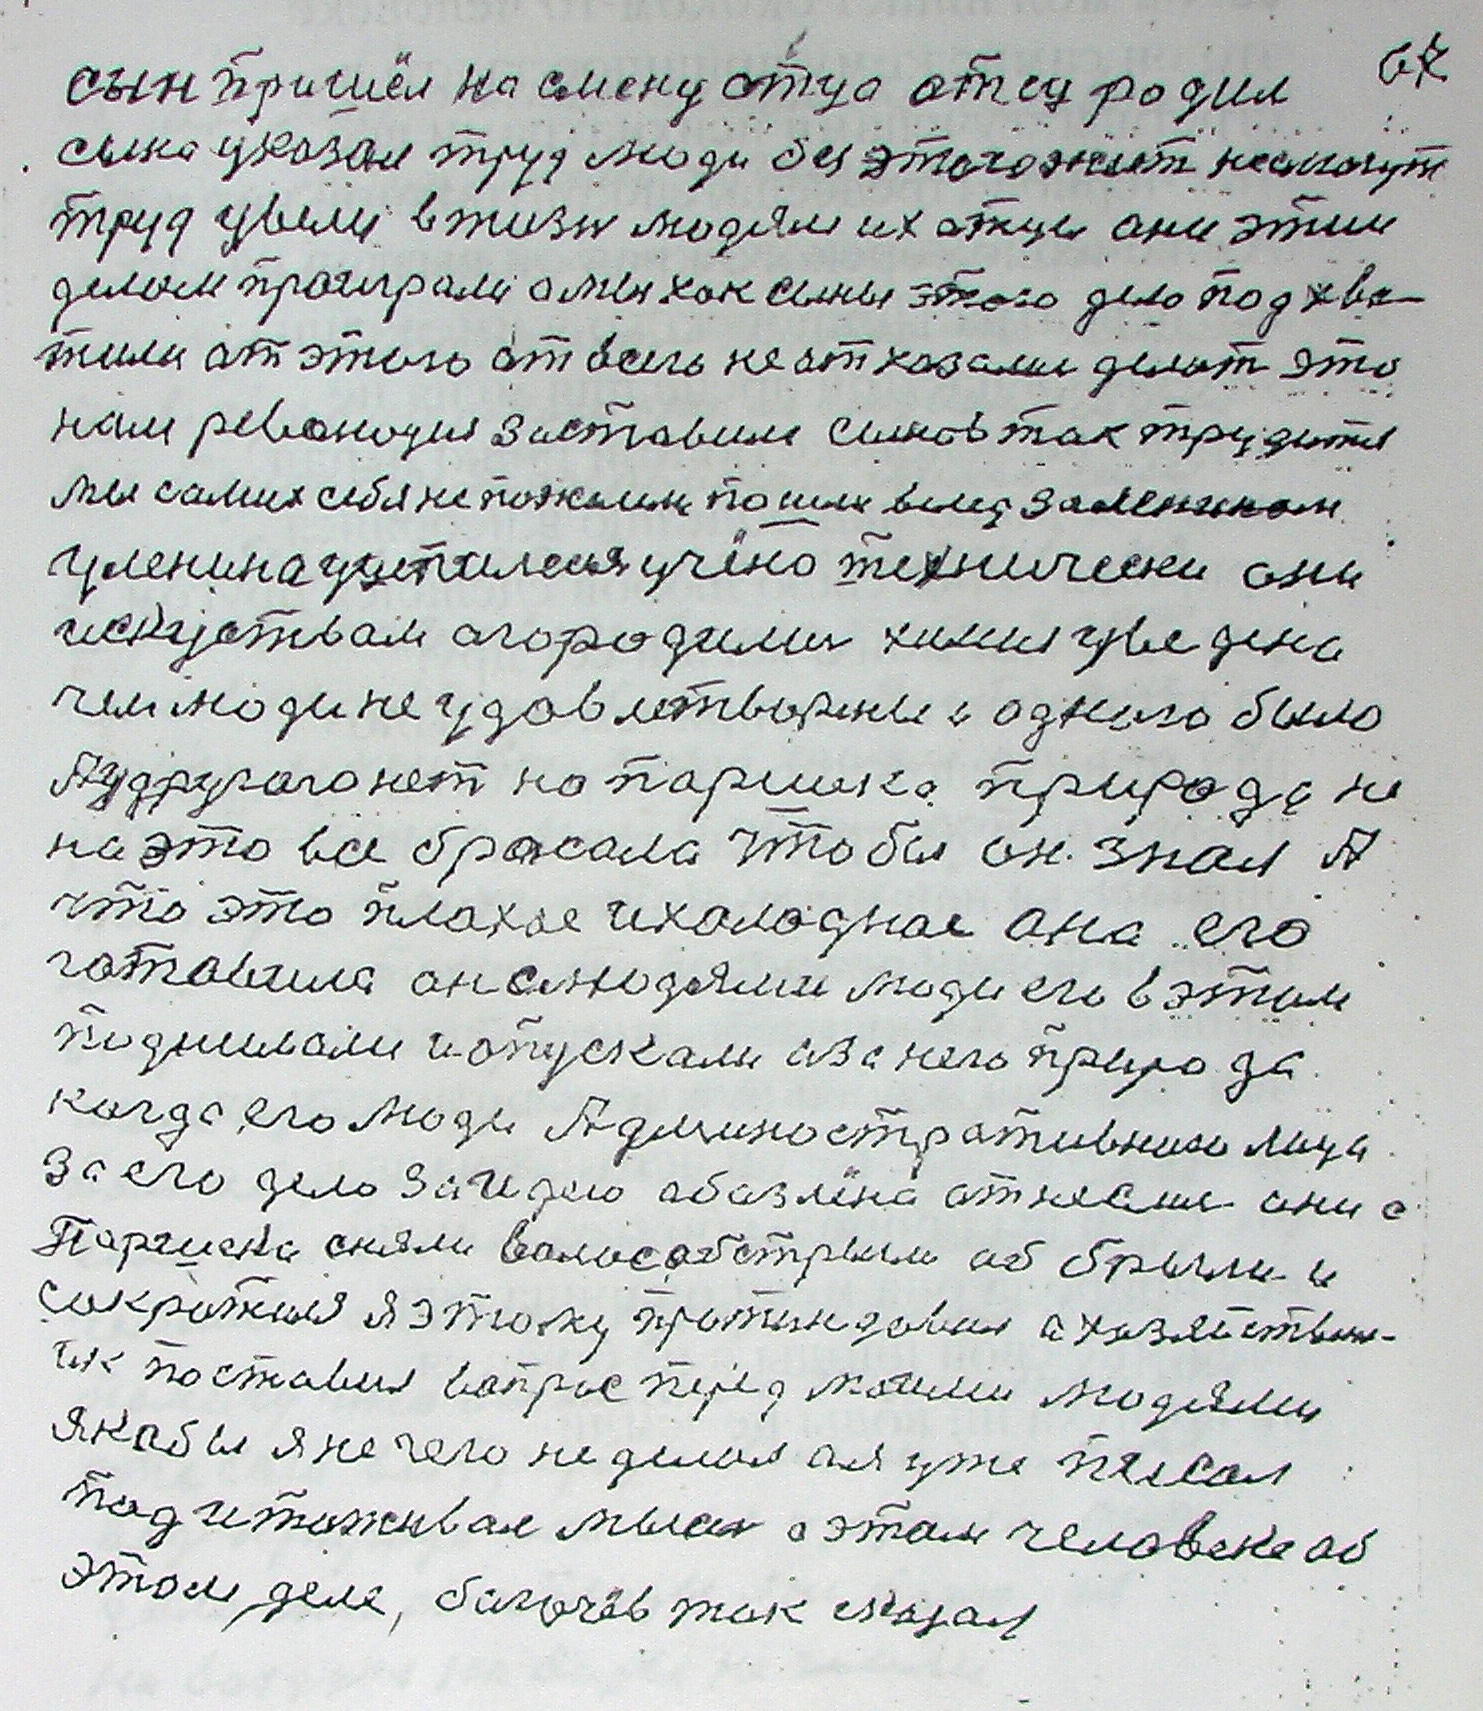 67
сын пришёл на смену отца отец родил
сына указал труд люди без этого жит несмогут
труд увели в жизн людям их отцы они этим
делом проиграли а мы как сыны этого дело подхва-
тили от этого от всего не отказалис делат это
нам революция заставила сынов так трудится
мы самих себя не пожалели пошли вслед за лениным
у ленина учителися учёно технически они
искуством огородилис химия уведена
чем люди не удовлетворены у одного было
А у другого нет но паршека природа не
на это все бросала что бы он знал А
что это плохое и холодное она его
готовила он с людями люди его в этом
поднимали и опускали а за него природа
когда его люди Админостративного лица
за его дело за идею обазлёна отнеслис они с
Паршека сняли волосо обстригли об брили и
сократили я этому притиндовал а хазяйствен-
ик поставил вопрос перед моими людями
якобы я не чего не делал а я уже писал
подитоживае мысли о этом человеке об
этом деле, богачёв так сказал